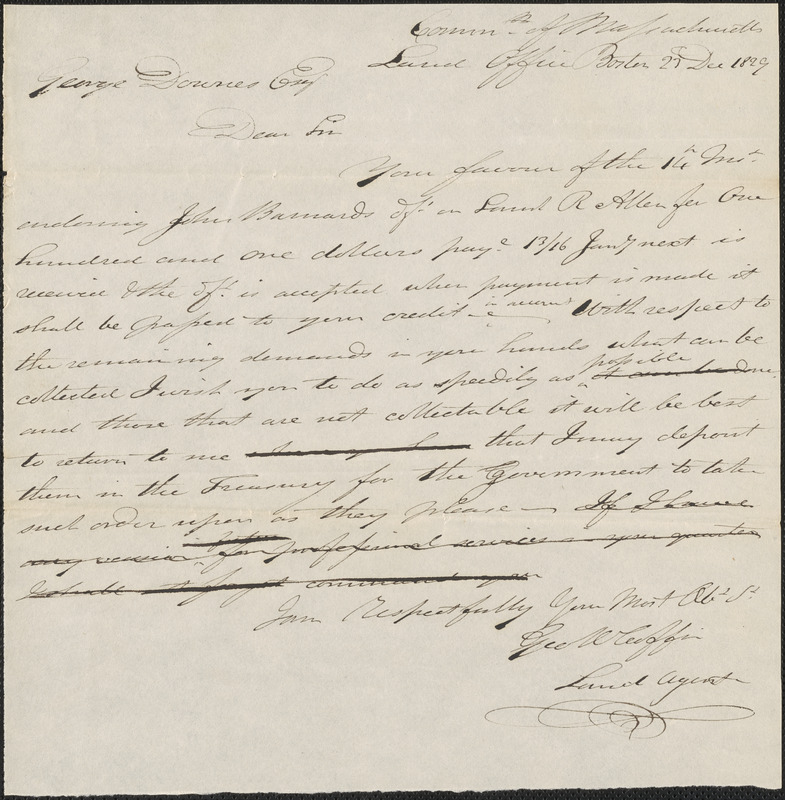 Commth of Massachusetts
Land Office Boston 23 Dec 1829
George Downes Esq
Dear Sir
Your favour of the 14th Inst.
endorsing John Barnards dft on Saml R Allen for One
hundred and one dollars paye 13/16 Jany next is
received & the dft is accepted when payment is made it
shall be passed to your credit in account With respect to
the remaining demands in your hands what can be
collected I wish you to do as speedily as possible it can be done.
and those that are not collectable it will be best
to return to me that I may deposit
them in the Treasury for the Government to take
such order upon as they please — If I have
any occasion for professional services in your quarter
I shall not forget command you
I am Respectfully Your Most Obt St
Geo W Coffin
Land Agent